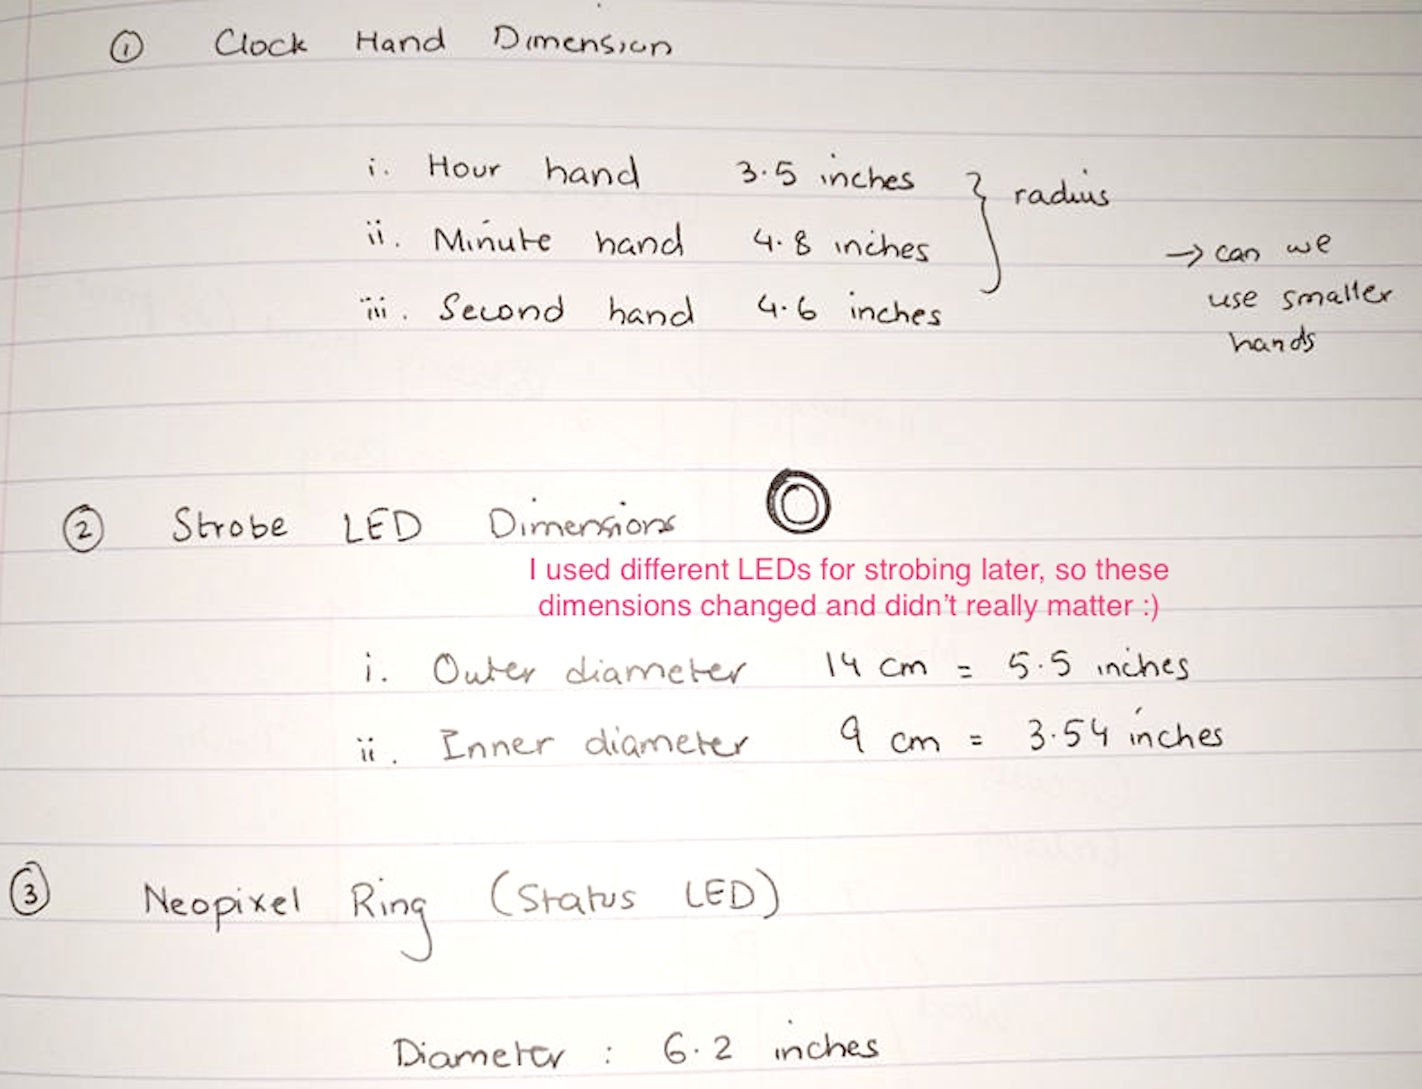 ① Clock Hand Dimension
i. Hour hand 3.5 inches } radius
ii. Minute hand 4.8 inches
iii. Second hand 4.6 inches
→ can we
use smaller
hands
② Strobe LED Dimensions
I used different LEDs for strobing later, so these
dimensions changed and didn't really matter :)
i. Outer diameter 14 cm = 5.5 inches
ii. Inner diameter 9 cm = 3.54 inches
③ Neopixel Ring (Status LED)
Diameter : 6.2 inches